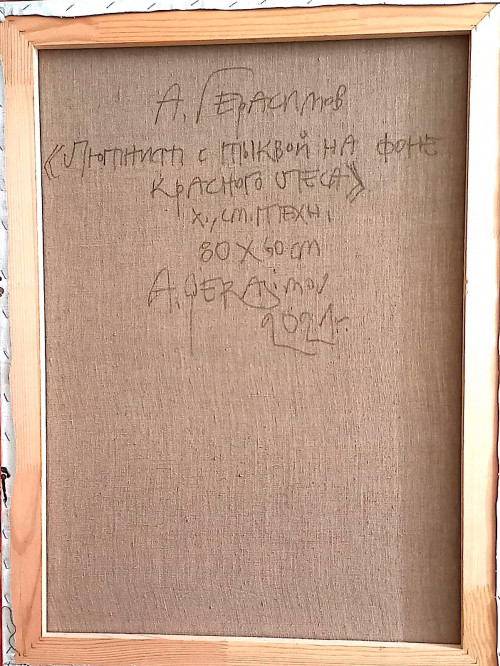 А. Герасимов
«Лютнист с тыквой на фоне
красного леса»
х., см. техн.
80 X 60 cm
A. GERAsimov
2021г.